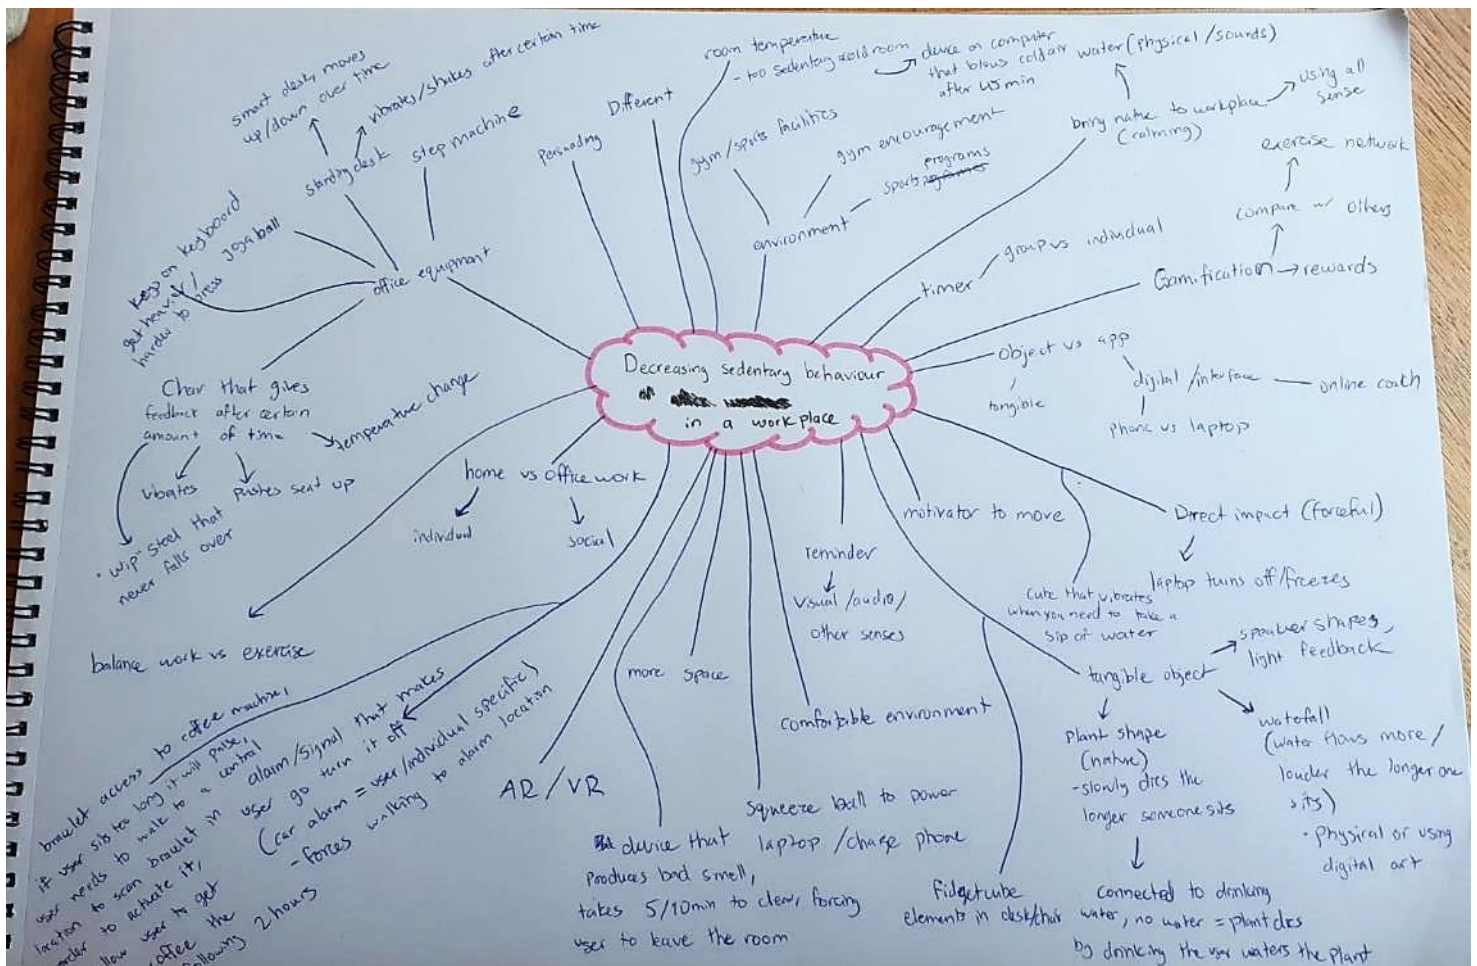 Decreasing sedentary behaviour
in a workplace
office equipment
standing desk
smart desk, moves
up/down over time
vibrates/shakes after certain time
step machine
yoga ball
keys on keyboard
get heavier/
harder to press
Chair that gives
feedback after certain
amount of time
temperature change
vibrates
pushes seat up
"wip" steel that
never falls over
Persuading
Different
room temperature
- too sedentary → cold room
device on computer
that blows cold air
after 45 min
environment
gym/sports facilities
gym encouragement
sports programs
bring nature to workplace
(calming)
water (physical/sounds)
using all
sense
timer
group vs individual
Gamification → rewards
compare w/ others
exercise network
Object vs app
tangible
digital/interface
online coach
phone vs laptop
Direct impact (forceful)
laptop turns off/freezes
cube that vibrates
when you need to take a
sip of water
motivator to move
tangible object
light feedback
Plant shape
(nature)
- slowly dies the
longer someone sits
connected to drinking
water, no water = plant dies
by drinking the user waters the plant
waterfall
(water flows more/
louder the longer one
sits)
- Physical or using
digital art
fidgetcube
elements in desk/chair
reminder
visual/audio/
other senses
comfortable environment
Squeeze ball to power
laptop/charge phone
more space
device that
produces bad smell,
takes 5/10min to clear, forcing
user to leave the room
AR/VR
home vs office work
individual
social
balance work vs exercise
alarm/signal that makes
user go turn it off
(car alarm = user/individual specific)
- forces walking to alarm location
bracelet access to coffee machine,
if user sits too long it will pulse,
user needs to walk to a control
location to scan bracelet in
order to activate it,
allow user to get
coffee the
following 2 hours